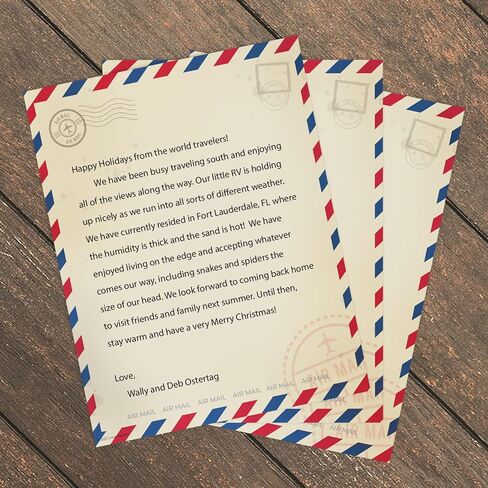 AIR MAIL
AIR MAIL
Happy Holidays from the world travelers!
We have been busy traveling south and enjoying
all of the views along the way. Our little RV is holding
up nicely as we run into all sorts of different weather.
We have currently resided in Fort Lauderdale, FL where
the humidity is thick and the sand is hot! We have
enjoyed living on the edge and accepting whatever
comes our way, including snakes and spiders the
size of our head. We look forward to coming back home
to visit friends and family next summer. Until then,
stay warm and have a very Merry Christmas!
Love,
Wally and Deb Ostertag
AIR MAIL
AIR MAIL AIR MAIL AIR MAIL AIR MAIL AIR MAIL
AIR MAIL AIR MAIL
AIR MA